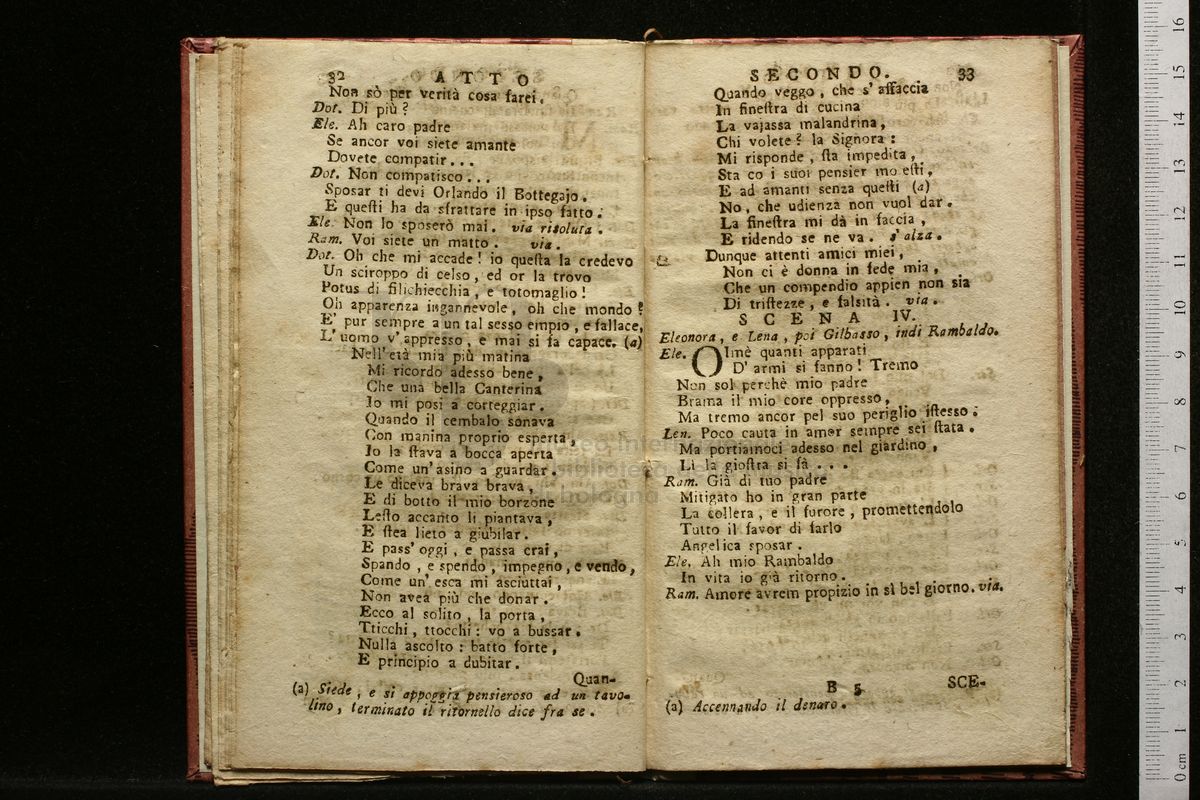 32 ATTO
Non sò per verità cosa farei.
Dot. Di più?
Ele. Ah caro padre
Se ancor voi siete amante
Dovete compatir...
Dot. Non compatisco...
Sposar ti devi Orlando il Bottegajo.
E queſti ha da sfrattare in ipso fatto.
Ele. Non lo sposerò mai. via risoluta.
Ram. Voi siete un matto. via.
Dot. Oh che mi accade! io queſta la credevo
Un sciroppo di celso, ed or la trovo
Potus di filichiecchia, e totomaglio!
Oh apparenza ingannevole, oh che mondo?
E' pur sempre a un tal sesso empio, e fallace,
L' uomo v' appresso, e mai si fa capace. (a)
Nell' età mia più matina
Mi ricordo adesso bene,
Che una bella Canterina
Io mi posi a corteggiar.
Quando il cembalo sonava
Con manina proprio esperta,
Io la ſtava a bocca aperta
Come un' asino a guardar.
Le diceva brava brava,
E di botto il mio borzone
Leſto accanto li piantava,
E ſtea lieto a giubilar.
E pass' oggi, e passa crai,
Spando, e spendo, impegno, e vendo,
Come un' esca mi asciuttai,
Non avea più che donar.
Ecco al solito, la porta,
Tticchi, ttocchi: vo a bussar.
Nulla ascolto: batto forte,
E principio a dubitar.
Quan-
(a) Siede, e si appoggia pensieroso ad un tavo-
lino, terminato il ritornello dice fra se.
SECONDO. 33
Quando veggo, che s' affaccia
In fineſtra di cucina
La vajassa malandrina,
Chi volete? la Signora:
Mi risponde, ſta impedita,
Sta co i suoi pensier mo eſti,
E ad amanti senza queſti (a)
No, che udienza non vuol dar.
La fineſtra mi dà in faccia,
E ridendo se ne va. s' alza.
Dunque attenti amici miei,
Non ci è donna in fede mia,
Che un compendio appien non sia
Di triſtezze, e falsità. via.
SCENA IV.
Eleonora, e Lena, poi Gilbasso, indi Rambaldo.
Ele. OImè quanti apparati
D' armi si fanno! Tremo
Non sol perchè mio padre
Brama il mio core oppresso,
Ma tremo ancor pel suo periglio iſtesso;
Len. Poco cauta in amor sempre sei ſtata.
Ma portiamoci adesso nel giardino,
Lì la gioſtra si fà...
Ram. Già di tuo padre
Mitigato ho in gran parte
La collera, e il furore, promettendolo
Tutto il favor di farlo
Angelica sposar.
Ele. Ah mio Rambaldo
In vita io già ritorno.
Ram. Amore avrem propizio in sì bel giorno. via.
B 5 SCE-
(a) Accennando il denaro.